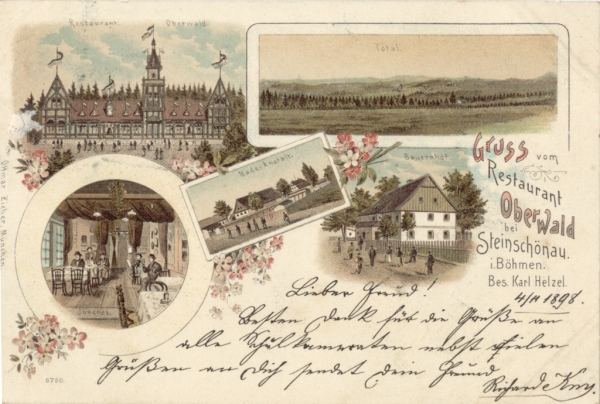 Restaurant Oberwald
Total
Bade-Anstalt
Bauernhof
Inneres
Gruss vom
Restaurant
Oberwald
bei
Steinschönau.
i. Böhmen.
Bes. Karl Helzel.
4/11 1898.
Lieber Freund!
Besten Dank für die Grüße an
alle Schulkameraten nebst vielen
Grüßen an Dich sendet dein Freund
Richard
Ottmar Zieher, München.
5790.